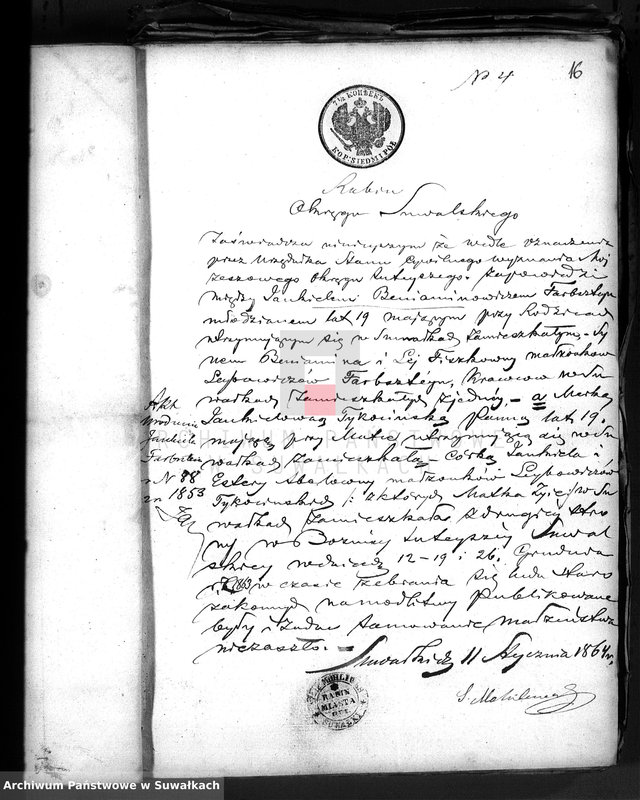 № 4
16
7½ КОПѢЕКЪ
KOP. SIEDM I PÓŁ
Rabin
Okręgu Suwalskiego
Zaświadcza niniejszym że wedle oznaczenia
przez Urzędnika Stanu Cywilnego wyznania Moj
żeszowego Okręgu tutejszego. zapowiedzi
między Jankielem Beniaminowiczem Farbsztejn
młodzianem lat 19 mającym przy Rodzicach
utrzymującym się w Suwałkach zamieszkałym. Sy
nem Beniamina i Lej Fiszkowny małżonków
Leybowiczów Farbsztejn, Krawców w Su
wałkach zamieszkałych z jednej, – a Matką
Jankielowną Tykocińską Panną lat 19.
mającą przy Matce utrzymującą się w Su
wałkach zamieszkałą – córką Jankiela i
Estery Abelowny małżonków Leybowiczów
Tykocińskich /: z których Matka żyje w Su
wałkach zamieszkała z drugiej stro
ny w Bożnicy tutejszej Suwal
skiej w dniach 12 – 19 i 26. Grudnia
1863 w czasie zebrania się ludu Staro
zakonnych na modlitwy publikowane
były i żadne tamowanie małżeństwa
nie zaszło. –
Suwałki d. 11 Stycznia 1864 r.
Akt
urodzenia
Jankiela
Farbsztejn
N 88
z r. 1853
RABIN
MIASTA
SUWAŁK
Archiwum Państwowe w Suwałkach